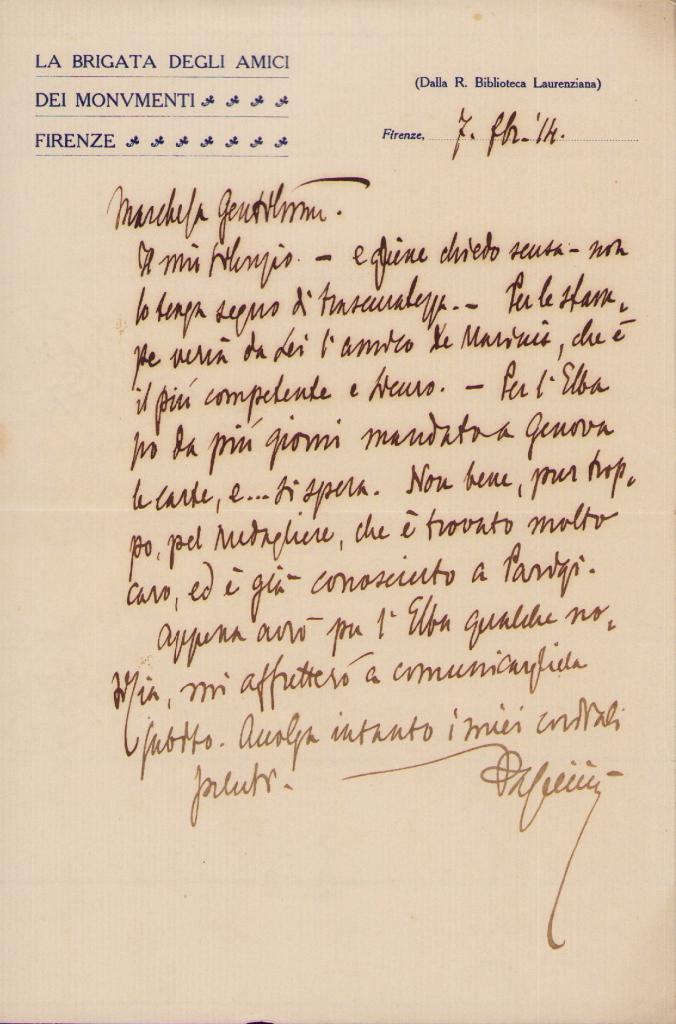 LA BRIGATA DEGLI AMICI
DEI MONVMENTI
FIRENZE
(Dalla R. Biblioteca Laurenziana)
Firenze, 7. fbr. '14.
Marchesa Gentilissima.
Il mio silenzio. — e gliene chiedo scusa — non
lo tenga segno di trascuratezza. — Per le stam-
pe verrà da Lei l'amico De Marinis, che è
il più competente e sicuro. — Per l'Elba
ho da più giorni mandato a Genova
le carte, e... si spera. Non bene, pur trop-
po, pel medagliere, che è trovato molto
caro, ed è già conosciuto a Parigi.
Appena avrò per l'Elba qualche no-
tizia, mi affretterò a comunicargliela
subito. Accolga intanto i miei cordiali
saluti.